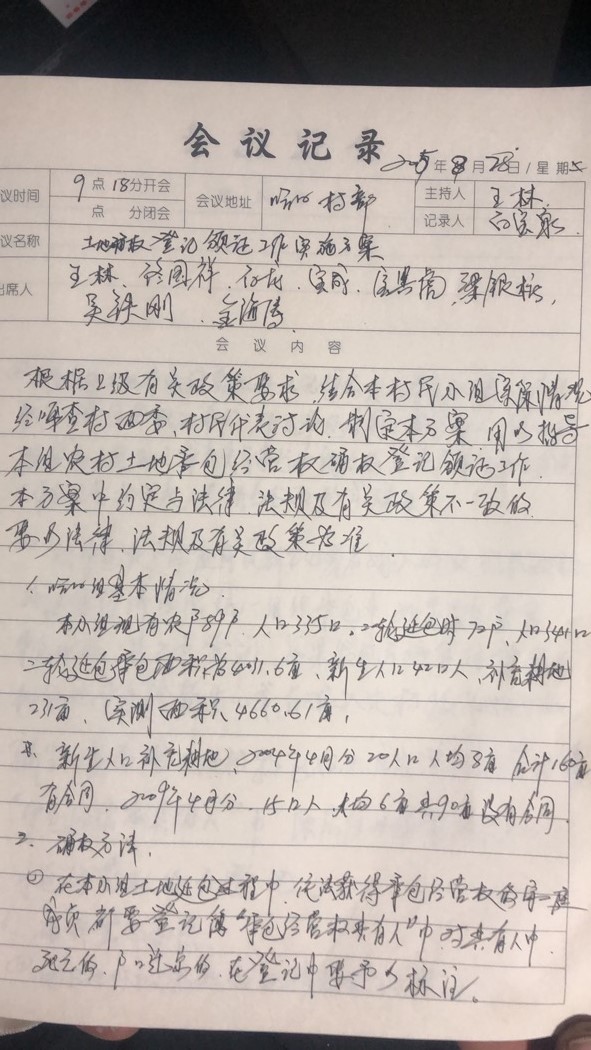 会议记录
年 8 月 28日/星期五
议时间 9点18分开会 会议地址 村部 主持人 王林
点 分闭会 记录人
议名称 土地确权登记颁证工作实施方案
出席人 王林、佟国祥、
吴铁刚、金海涛
会议内容
根据上级有关政策要求,结合本村民小组实际情况
经 村两委、村民代表讨论,制定本方案 用以指导
本组农村土地承包经营权确权登记颁证工作。
本方案中约定与法律、法规及有关政策不一致的
要以法律、法规及有关政策为准。
1. 组基本情况
本小组现有农户89户,人口335口。二轮延包时72户、人口341口
二轮延包承包面积为4011.6亩、新生人口42口人、补充耕地
231亩,实测面积4660.61亩,
新生人口补充耕地,2004年4月分20人口人均8亩 合计160亩
有合同,2009年4月分、15口人、人均6亩共90亩没有合同
2. 确权方法,
① 在本小组土地延包过程中,依法获得承包经营权的
成员都要登记 “承包经营权共有人”中,对共有人中
死亡的、户口迁出的,在登记中要予以标注。